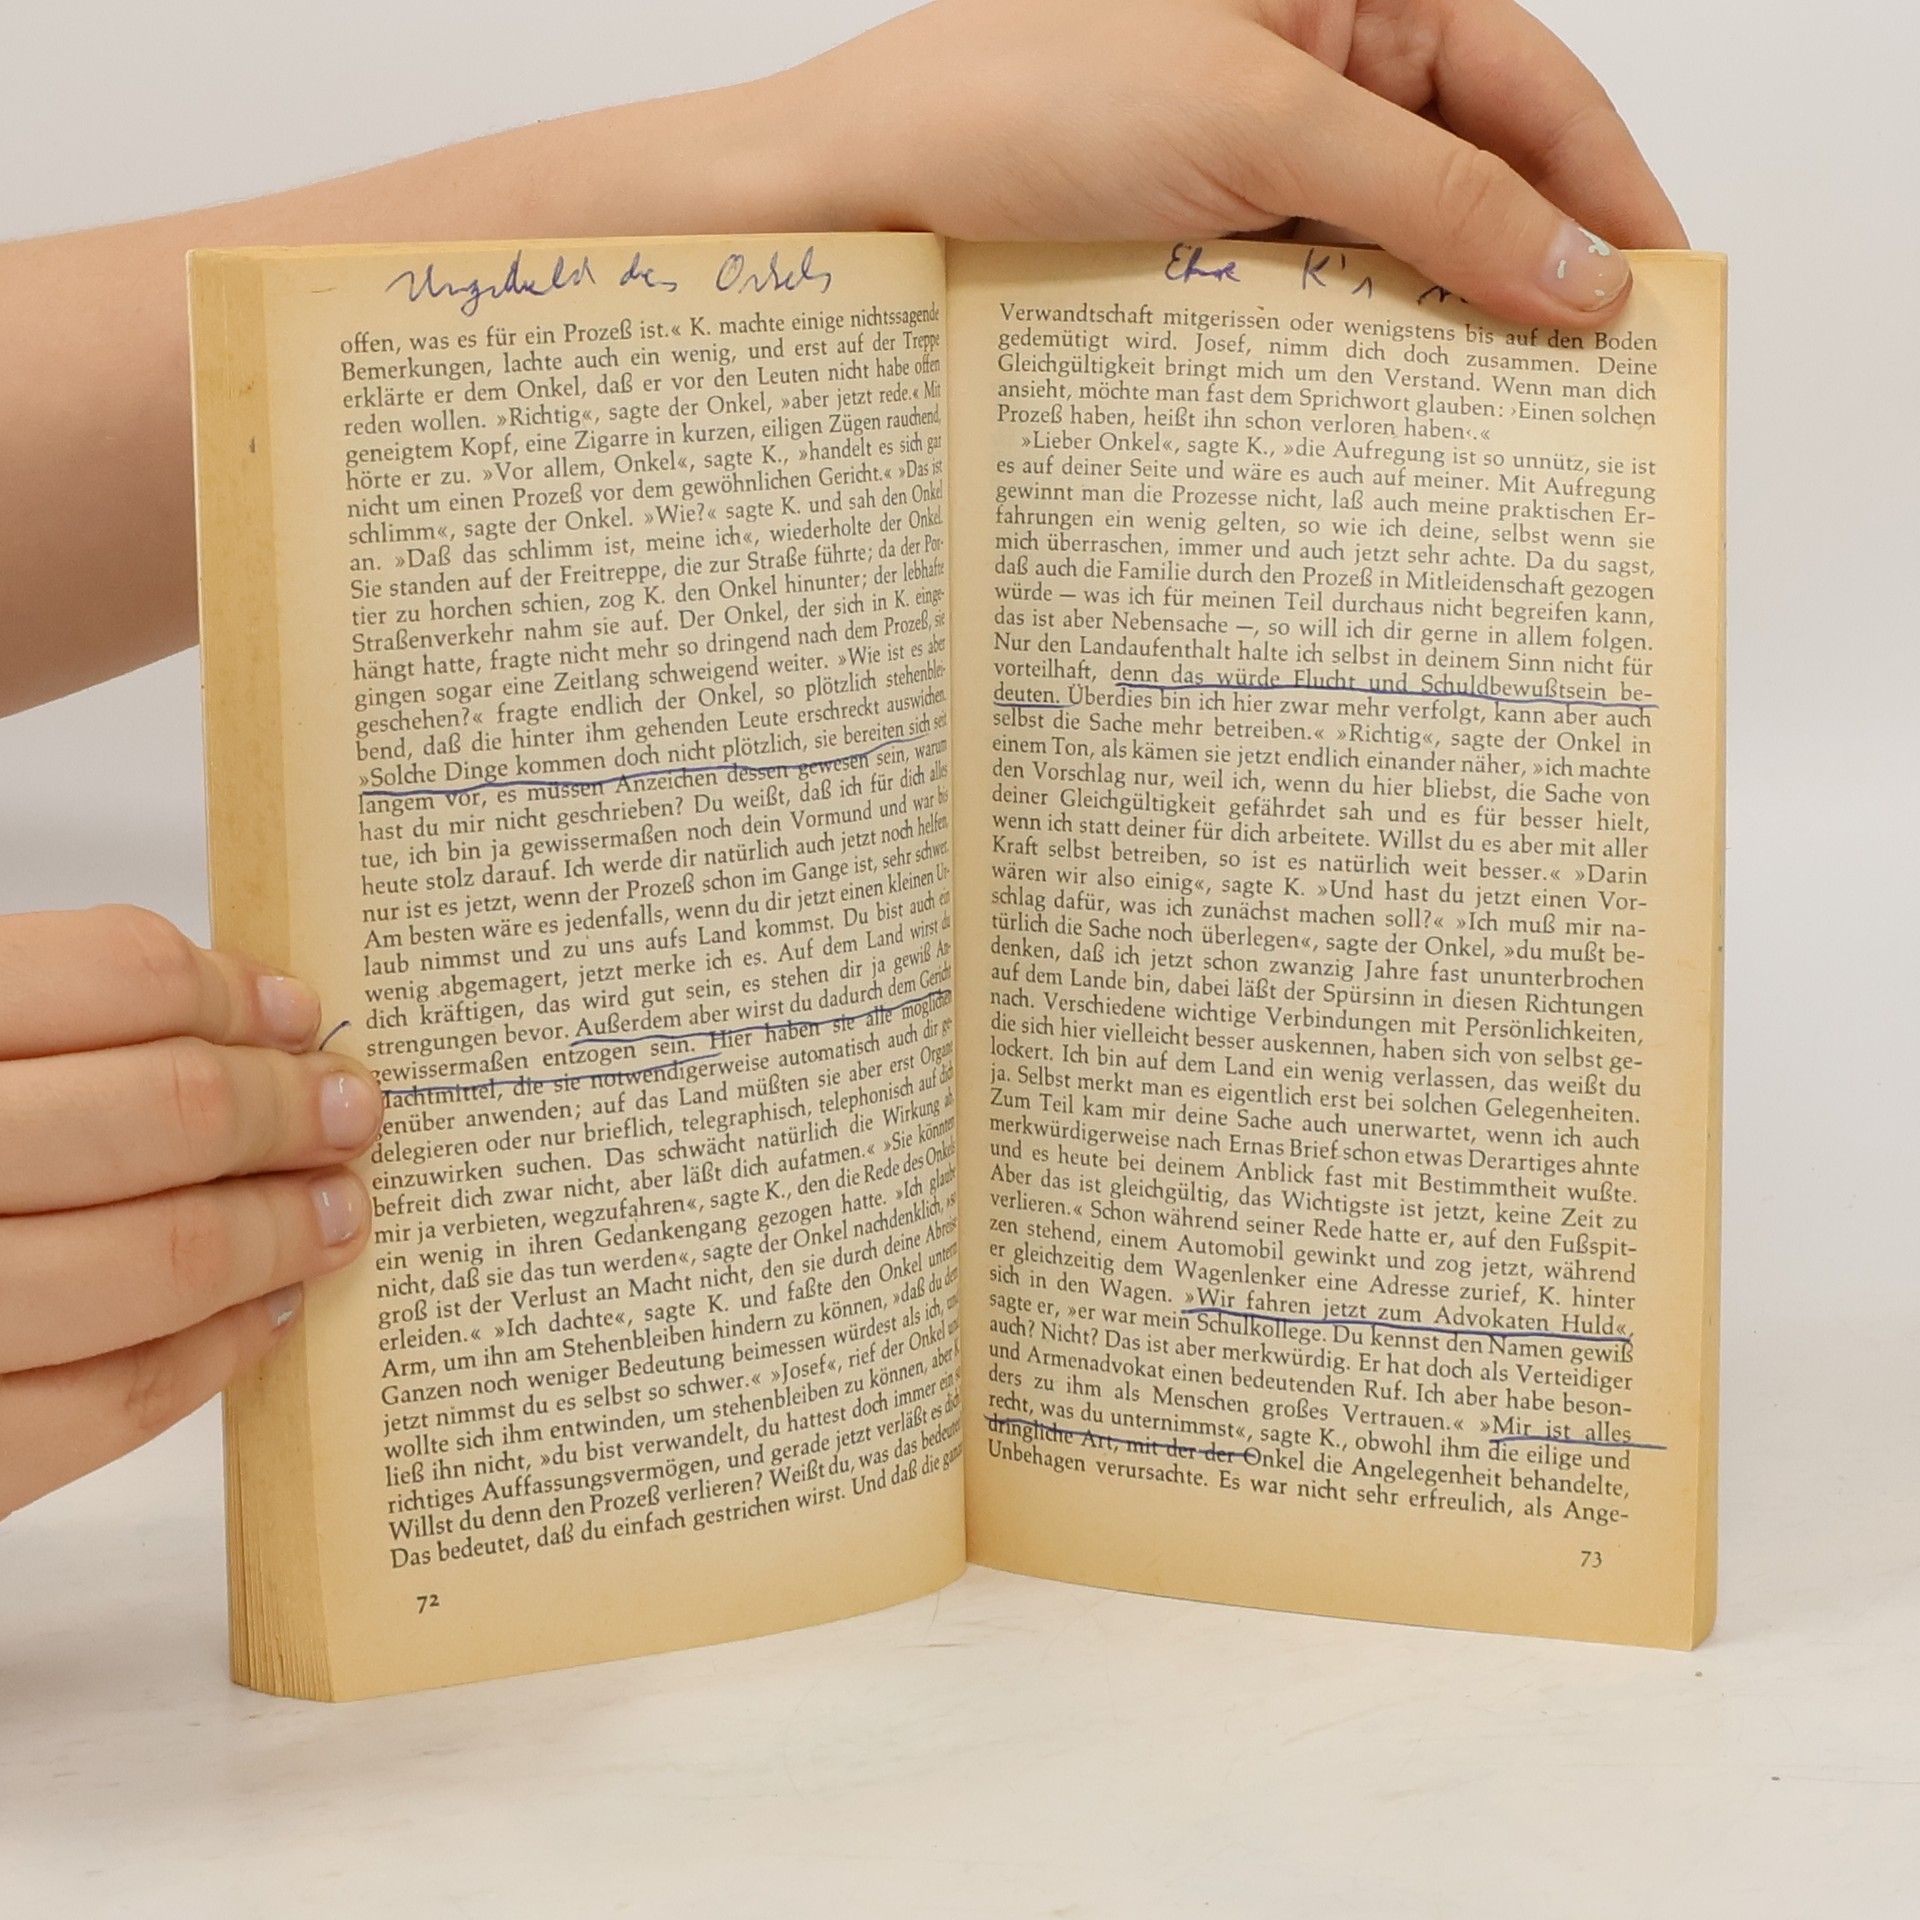 Ungeduld des Onkels
offen, was es für ein Prozeß ist.« K. machte einige nichtssagende
Bemerkungen, lachte auch ein wenig, und erst auf der Treppe
erklärte er dem Onkel, daß er vor den Leuten nicht habe offen
reden wollen. »Richtig«, sagte der Onkel, »aber jetzt rede.« Mit
geneigtem Kopf, eine Zigarre in kurzen, eiligen Zügen rauchend,
hörte er zu. »Vor allem, Onkel«, sagte K., »handelt es sich gar
nicht um einen Prozeß vor dem gewöhnlichen Gericht.« »Das ist
schlimm«, sagte der Onkel. »Wie?« sagte K. und sah den Onkel
an. »Daß das schlimm ist, meine ich«, wiederholte der Onkel.
Sie standen auf der Freitreppe, die zur Straße führte; da der Por-
tier zu horchen schien, zog K. den Onkel hinunter; der lebhafte
Straßenverkehr nahm sie auf. Der Onkel, der sich in K. einge-
hängt hatte, fragte nicht mehr so dringend nach dem Prozeß, sie
gingen sogar eine Zeitlang schweigend weiter. »Wie ist es aber
geschehen?« fragte endlich der Onkel, so plötzlich stehenblei-
bend, daß die hinter ihm gehenden Leute erschreckt auswichen.
»Solche Dinge kommen doch nicht plötzlich, sie bereiten sich seit
langem vor, es müssen Anzeichen dessen gewesen sein, warum
hast du mir nicht geschrieben? Du weißt, daß ich für dich alles
tue, ich bin ja gewissermaßen noch dein Vormund und war bis
heute stolz darauf. Ich werde dir natürlich auch jetzt noch helfen,
nur ist es jetzt, wenn der Prozeß schon im Gange ist, sehr schwer.
Am besten wäre es jedenfalls, wenn du dir jetzt einen kleinen Ur-
laub nimmst und zu uns aufs Land kommst. Du bist auch ein
wenig abgemagert, jetzt merke ich es. Auf dem Land wirst du
dich kräftigen, das wird gut sein, es stehen dir ja gewiß An-
strengungen bevor. Außerdem aber wirst du dadurch dem Gericht
gewissermaßen entzogen sein. Hier haben sie alle möglichen
Machtmittel, die sie notwendigerweise automatisch auch dir ge-
genüber anwenden; auf das Land müßten sie aber erst Organe
delegieren oder nur brieflich, telegraphisch, telephonisch auf dich
einzuwirken suchen. Das schwächt natürlich die Wirkung ab,
befreit dich zwar nicht, aber läßt dich aufatmen.« »Sie könnten
mir ja verbieten, wegzufahren«, sagte K., den die Rede des Onkels
ein wenig in ihren Gedankengang gezogen hatte. »Ich glaube
nicht, daß sie das tun werden«, sagte der Onkel nachdenklich, »so
groß ist der Verlust an Macht nicht, den sie durch deine Abreise
erleiden.« »Ich dachte«, sagte K. und faßte den Onkel unterm
Arm, um ihn am Stehenbleiben hindern zu können, »daß du dem
Ganzen noch weniger Bedeutung beimessen würdest als ich, und
jetzt nimmst du es selbst so schwer.« »Josef«, rief der Onkel und
wollte sich ihm entwinden, um stehenbleiben zu können, aber K.
ließ ihn nicht, »du bist verwandelt, du hattest doch immer ein so
richtiges Auffassungsvermögen, und gerade jetzt verläßt es dich?
Willst du denn den Prozeß verlieren? Weißt du, was das bedeutet?
Das bedeutet, daß du einfach gestrichen wirst. Und daß die ganze
72
K's
Verwandtschaft mitgerissen oder wenigstens bis auf den Boden
gedemütigt wird. Josef, nimm dich doch zusammen. Deine
Gleichgültigkeit bringt mich um den Verstand. Wenn man dich
ansieht, möchte man fast dem Sprichwort glauben: ›Einen solchen
Prozeß haben, heißt ihn schon verloren haben‹.«
»Lieber Onkel«, sagte K., »die Aufregung ist so unnütz, sie ist
es auf deiner Seite und wäre es auch auf meiner. Mit Aufregung
gewinnt man die Prozesse nicht, laß auch meine praktischen Er-
fahrungen ein wenig gelten, so wie ich deine, selbst wenn sie
mich überraschen, immer und auch jetzt sehr achte. Da du sagst,
daß auch die Familie durch den Prozeß in Mitleidenschaft gezogen
würde — was ich für meinen Teil durchaus nicht begreifen kann,
das ist aber Nebensache —, so will ich dir gerne in allem folgen.
Nur den Landaufenthalt halte ich selbst in deinem Sinn nicht für
vorteilhaft, denn das würde Flucht und Schuldbewußtsein be-
deuten. Überdies bin ich hier zwar mehr verfolgt, kann aber auch
selbst die Sache mehr betreiben.« »Richtig«, sagte der Onkel in
einem Ton, als kämen sie jetzt endlich einander näher, »ich machte
den Vorschlag nur, weil ich, wenn du hier bliebst, die Sache von
deiner Gleichgültigkeit gefährdet sah und es für besser hielt,
wenn ich statt deiner für dich arbeitete. Willst du es aber mit aller
Kraft selbst betreiben, so ist es natürlich weit besser.« »Darin
wären wir also einig«, sagte K. »Und hast du jetzt einen Vor-
schlag dafür, was ich zunächst machen soll?« »Ich muß mir na-
türlich die Sache noch überlegen«, sagte der Onkel, »du mußt be-
denken, daß ich jetzt schon zwanzig Jahre fast ununterbrochen
auf dem Lande bin, dabei läßt der Spürsinn in diesen Richtungen
nach. Verschiedene wichtige Verbindungen mit Persönlichkeiten,
die sich hier vielleicht besser auskennen, haben sich von selbst ge-
lockert. Ich bin auf dem Land ein wenig verlassen, das weißt du
ja. Selbst merkt man es eigentlich erst bei solchen Gelegenheiten.
Zum Teil kam mir deine Sache auch unerwartet, wenn ich auch
merkwürdigerweise nach Ernas Brief schon etwas Derartiges ahnte
und es heute bei deinem Anblick fast mit Bestimmtheit wußte.
Aber das ist gleichgültig, das Wichtigste ist jetzt, keine Zeit zu
verlieren.« Schon während seiner Rede hatte er, auf den Fußspit-
zen stehend, einem Automobil gewinkt und zog jetzt, während
er gleichzeitig dem Wagenlenker eine Adresse zurief, K. hinter
sich in den Wagen. »Wir fahren jetzt zum Advokaten Huld«,
sagte er, »er war mein Schulkollege. Du kennst den Namen gewiß
auch? Nicht? Das ist aber merkwürdig. Er hat doch als Verteidiger
und Armenadvokat einen bedeutenden Ruf. Ich aber habe beson-
ders zu ihm als Menschen großes Vertrauen.« »Mir ist alles
recht, was du unternimmst«, sagte K., obwohl ihm die eilige und
dringliche Art, mit der der Onkel die Angelegenheit behandelte,
Unbehagen verursachte. Es war nicht sehr erfreulich, als Ange-
73